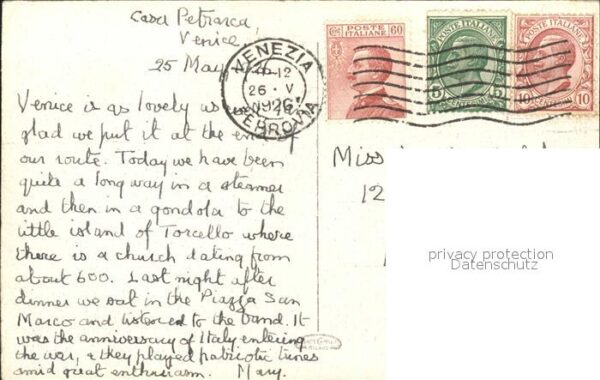 Casa Petrarca,
Venice,
25 May
Venice is as lovely as
glad we put it at the end of
our route. Today we have been
quite a long way in a steamer
and then in a gondola to the
little island of Torcello where
there is a church dating from
about 600. Last night after
dinner we sat in the Piazza San
Marco and listened to the band. It
was the anniversary of Italy entering
the war, & they played patriotic tunes
amid great enthusiasm. Mary.
VENEZIA
26 · V
1926
FERROVIA
60 POSTE ITALIANE
POSTE ITALIANE
5 CENTESIMI 5
POSTE ITALIANE
10 CENTESIMI 10
Miss
12
privacy protection
Datenschutz